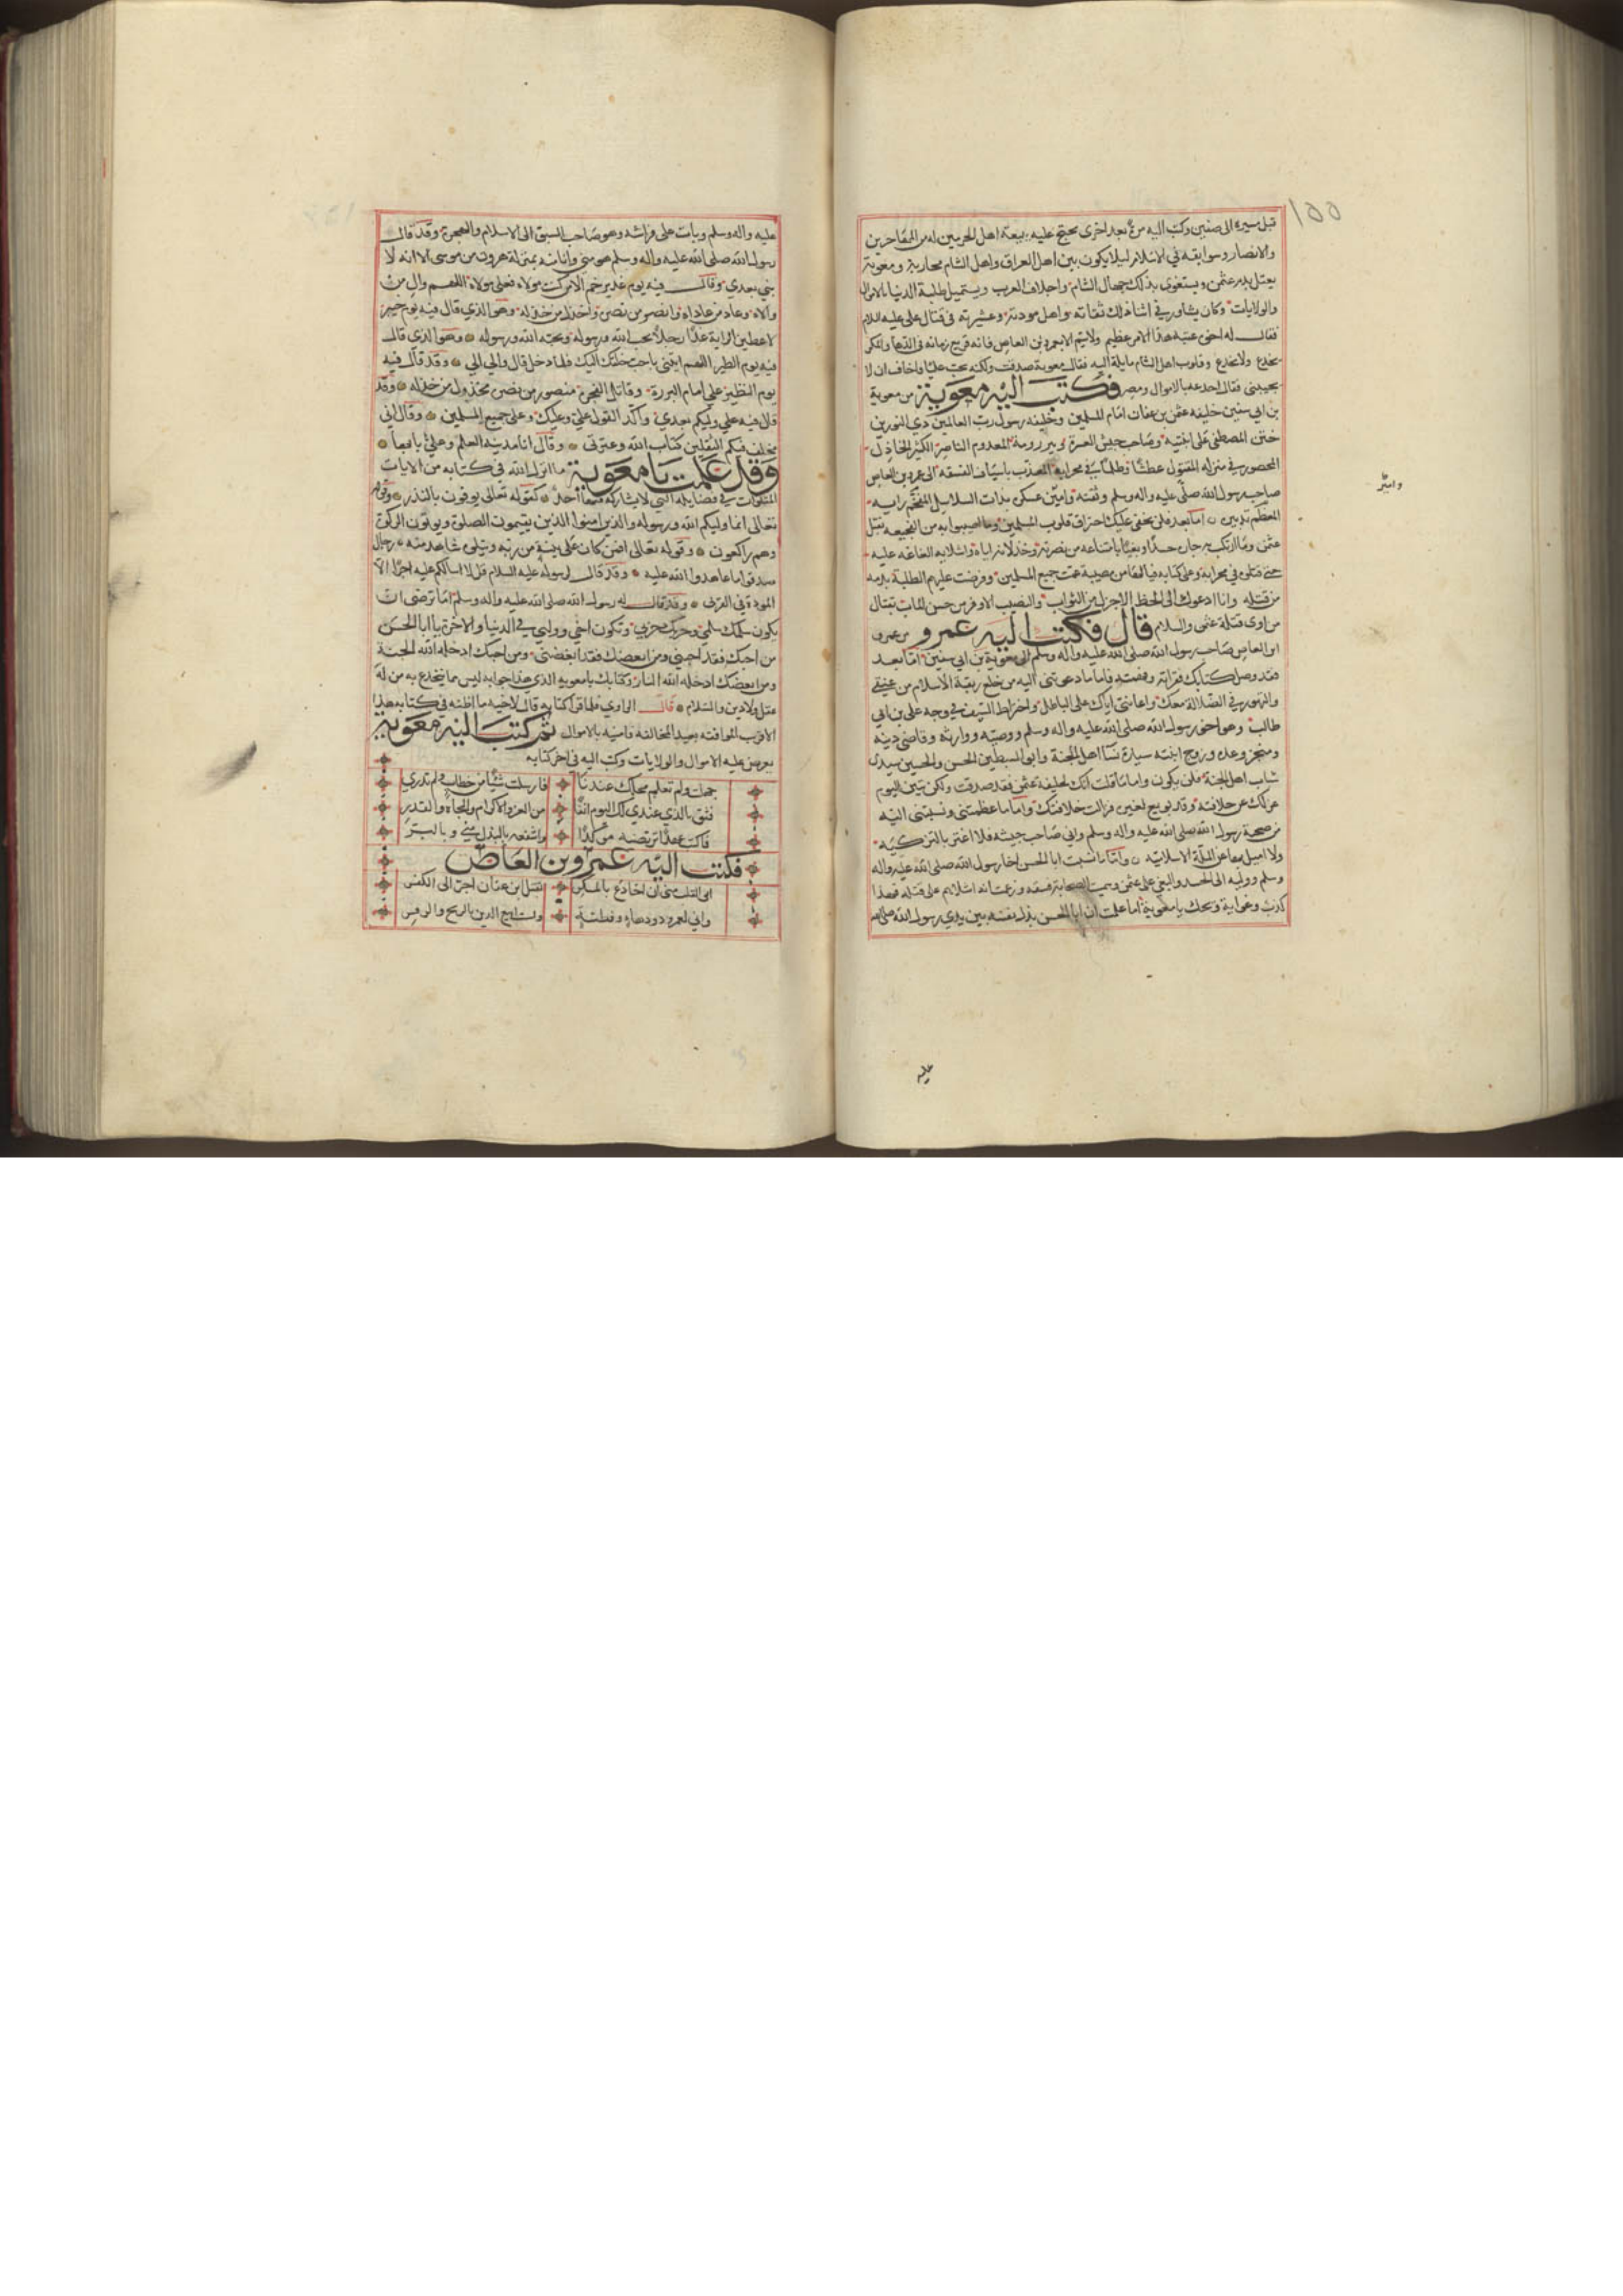 ١٥٥
قبل مسيره الى صفين وكتب اليه مرة بعد اخرى يحتج عليه ببيعة اهل الحرمين له من المهاجرين
والانصار وسوابقه في الاسلام ليلا يكون بين اهل العراق واهل الشام محاربة ومعوية
يعتل بدم عثمن ويستغوى بذلك جهال الشام واجلاف العرب ويستميل طلبة الدنيا بالاموال
والولايات وكان يشاور في اثنا ذلك ثقاته واهل مودته وعشيرته في قتال علي عليه السلام
فقال له اخوه عتبة هذا امر عظيم ولا يتم الا بعمرو بن العاص فانه قريع زمانه في الدها والمكر
يخدع ولا يخدع وقلوب اهل الشام مايلة اليه فقال معوية صدقت ولكنه يحب عليا فاخاف ان لا
يجيبني فقال اخدعه بالاموال ومصر فكتب اليه معوية من معوية
بن ابي سفين خليفة عثمن بن عفان امام المسلمين وخليفة رسول رب العالمين ذي النورين
ختن المصطفى على ابنتيه وصاحب جيش العسرة وبير رومة المعدوم الناصر الكثير الخاذل
المحصور في منزله المقتول عطشا وظلما في محرابه المعذب باسياف الفسقة الى عمرو بن العاص
صاحب رسول الله صلى عليه واله وسلم وثقته وامير عسكره بذات السلاسل المفخم رايه
المعظم تدبيره اما بعد فلن يخفى عليك احتراق قلوب المسلمين وما اصيبوا به من الفجيعة بقتل
عثمن وما ارتكب به جاره حسدا وبغيا بامتناعه من نصرته وخذلانه اياه واشلايه الغاغة عليه
حتى قتلوه في محرابه وعلى كتابه فيالها من مصيبة عمت جميع المسلمين وفرضت عليهم الطلبة بدمه
من قتله وانا ادعوك الى الحظ الاجزل من الثواب والنصيب الاوفر من حسن المآب بقتال
من اوى قتلة عثمن والسلام قال فكتب اليه عمرو من عمرو
ابن العاص صاحب رسول الله صلى الله عليه واله وسلم الى معوية بن ابي سفين اما بعد
فقد وصل كتابك فقراته وفهمته فاما ما دعوتني اليه من خلع ربقة الاسلام من عنقي
والتهور في الضلالة معك واعانتي اياك على الباطل واختراط السيف في وجه علي بن ابي
طالب وهو اخو رسول الله صلى الله عليه واله وسلم ووصيه ووارثه وقاضي دينه
ومنجز وعده وزوج ابنته سيدة نسآ اهل الجنة وابو السبطين الحسن والحسين سيدى
شباب اهل الجنة فلن يكون واما ما قلت انك خليفة عثمن فقد صدقت ولكن تبين اليوم
عزلك عن خلافته وقد بويع لغيره فزالت خلافتك واما ما عظمتني ونسبتني اليه
من صحبة رسول الله صلى الله عليه واله وسلم واني صاحب جيشه فلا اغتر بالتزكية
ولا اميل بها عن الملة الاسلامية واما ما نسبت ابا الحسن اخا رسول الله صلى الله عليه واله
وسلم ووليه الى الحسد والبغي على عثمن وسميت الصحابة فسقة وزعمت انه اشلاهم على قتله فهذا
كذب وغواية ويحك يا معوية اما علمت ان ابا الحسن بذل نفسه بين يدي رسول الله صلى الله
وامير
عليه
عليه واله وسلم وبات على فراشه وهو صاحب السبق الى الاسلام والهجرة وقد قال
رسول الله صلى الله عليه واله وسلم هو مني وانا منه بمنزلة هرون من موسى الا انه لا
نبي بعدي وقال فيه يوم غدير خم الا من كنت مولاه فعلي مولاه اللهم وال من
والاه وعاد من عاداه وانصر من نصره واخذل من خذله وهو الذي قال فيه يوم خيبر
لاعطين الراية غدا رجلا يحب الله ورسوله ويحبه الله ورسوله وهو الذي قال
فيه يوم الطير اللهم ايتني باحب خلقك اليك فلما دخل قال والي والي وقد قال فيه
يوم النظير علي امام البررة وقاتل الفجرة منصور من نصره مخذول من خذله وقد
قال فيه علي وليكم بعدي واكد القول علي وعليك وعلى جميع المسلمين وقال اني
مخلف فيكم الثقلين كتاب الله وعترتي وقال انا مدينة العلم وعلي بابها
وقد علمت يا معوية ما انزل الله في كتابه من الايات
المتلوات في فضايله التي لا يشاركه فيها احد كقوله تعالى يوفون بالنذر وقوله
تعالى انما وليكم الله ورسوله والذين امنوا الذين يقيمون الصلوة ويوتون الزكوة
وهم راكعون وقوله تعالى افمن كان على بينة من ربه ويتلوه شاهد منه رجال
صدقوا ما عاهدوا الله عليه وقد قال لرسوله عليه السلام قل لا اسالكم عليه اجرا الا
المودة في القربى وقد قال له رسول الله صلى الله عليه واله وسلم اما ترضى ان
يكون سلمك سلمي وحربك حربي وتكون اخي ووليي في الدنيا والاخرة يا ابا الحسن
من احبك فقد احبني ومن ابغضك فقد ابغضني ومن احبك ادخله الله الجنة
ومن ابغضك ادخله الله النار وكتابك يا معوية الذي هذا جوابه ليس مما ينخدع به من له
عقل ولا دين والسلام قال الراوي فلما قرا كتابه قال لاخيه ما اظنه في كتابه هذا
الا قريب الموافقة بعيد المخالفة فامنه بالاموال ثم كتب اليه معوية
يعرض عليه الاموال والولايات وكتب اليه في اخر كتابه
جهلت ولم تعلم محلك عندنا فارسلت شيئا من خطاب ولم تدري
فثق بالذي عندي لك اليوم انفا من العز والاكرام والجاه والقدر
فاكتب عهدا ترتضيه موكدا واشفعه بالبذل مني وبالبر
فكتب اليه عمرو بن العاص
ابى القلب مني ان اخادع بالمكر بقتل ابن عفان اجر الى الكفر
واني لعمرو ذو دهاء وفطنة ولست ابيع الدين بالربح والوفر